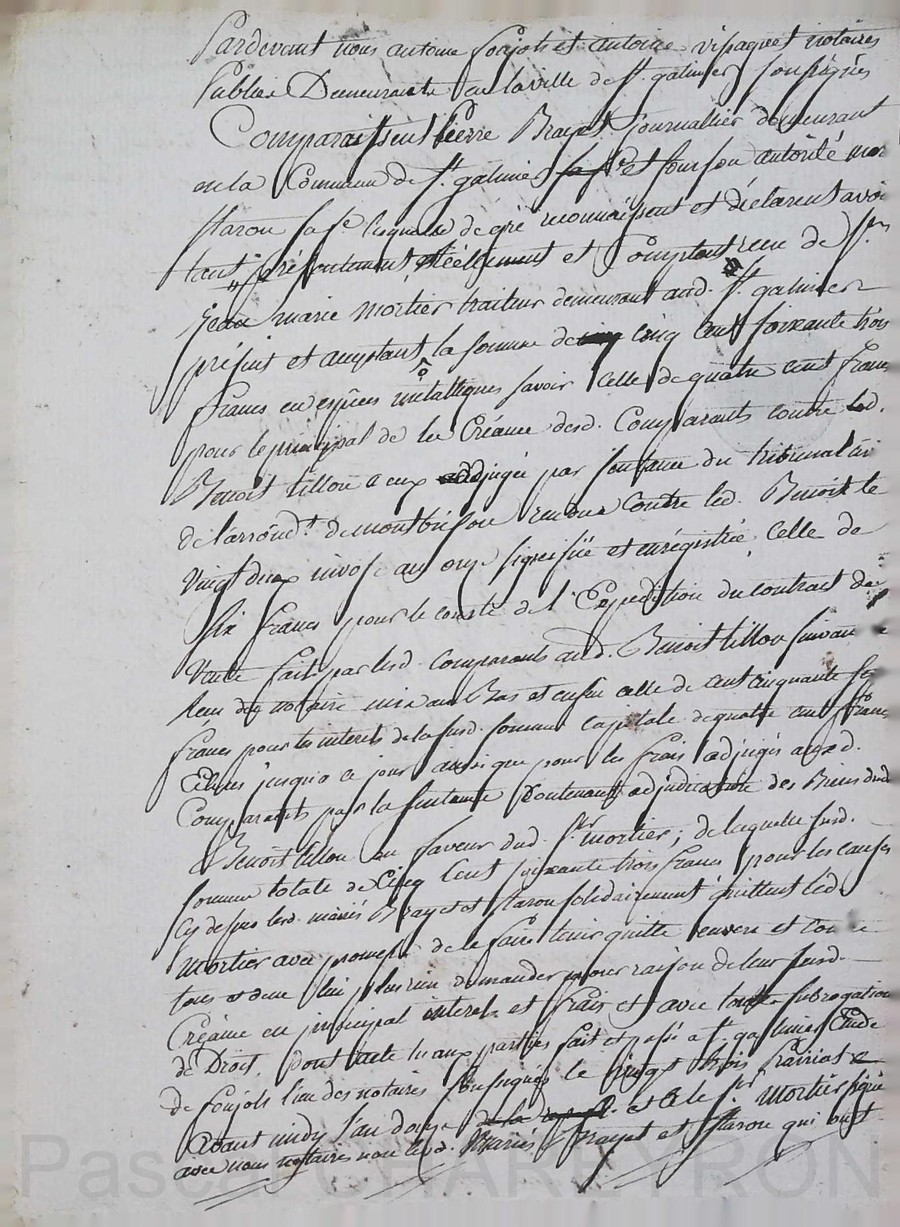 Pardevant nous antoine foujols et antoine notaires
Publics Demeurants en la ville de St. galmier soussignés
Comparaissent Pierre Brayet Journallier demeurant
en la Commune de St. galmier sa fe. et sous son autorité
Staron sa fe. lesquels de gré reconnaissent et déclarent avoir
tant présentement, Réellement et Comptant reçu de Sr.
jean marie Mortier traiteur demeurant aud. St. galmier
présent et acceptant la somme de cinq cent soixante trois
francs en espèces métalliques savoir celle de quatre cent francs
pour le principal de la Créance desd. Comparants contre led.
Benoit tillon a eux adjugée par sentence du tribunal
de l'arrondt. de montbrison rendue contre led. Benoit le
vingt deux nivose an onze signifiée et enrégistrée, Celle de
six francs pour le coute de l'Expedition du contrat de
Vente fait par lesd. comparants aud. Benoit tillon suivant
notaire en bas et enfin celle de cent cinquante sept
francs pour les interets de la susd. somme capitale de quatre cent francs
Echues jusqu'a ce jour ainsi que pour les frais adjugés auxd.
Comparants par la sentence Contenant adjudication des Biens dud.
Benoit tillon en faveur dud. Sr. mortier; de laquelle susd.
somme totale de Cinq Cent soixante trois francs pour les causes
cy dessus lesd. mariés Brayet et Staron solidairement quittent led.
Mortier avec promesse de le faire tenir quitte envers et contre
tous et de ne lui plus rien demander pour raison de leur susd.
Créance en principal interets et frais et avec toute subrogation
de Droit, Dont acte lu aux parties fait et passé a St. galmier Etude
de foujols l'un des notaires soussignés le vingt trois prairial
avant midy l'an douze et a le Sr. Mortier signé
avec nous notaires non lesd. Mariés Brayet et Staron qui ont
Pascal CHAREYRON